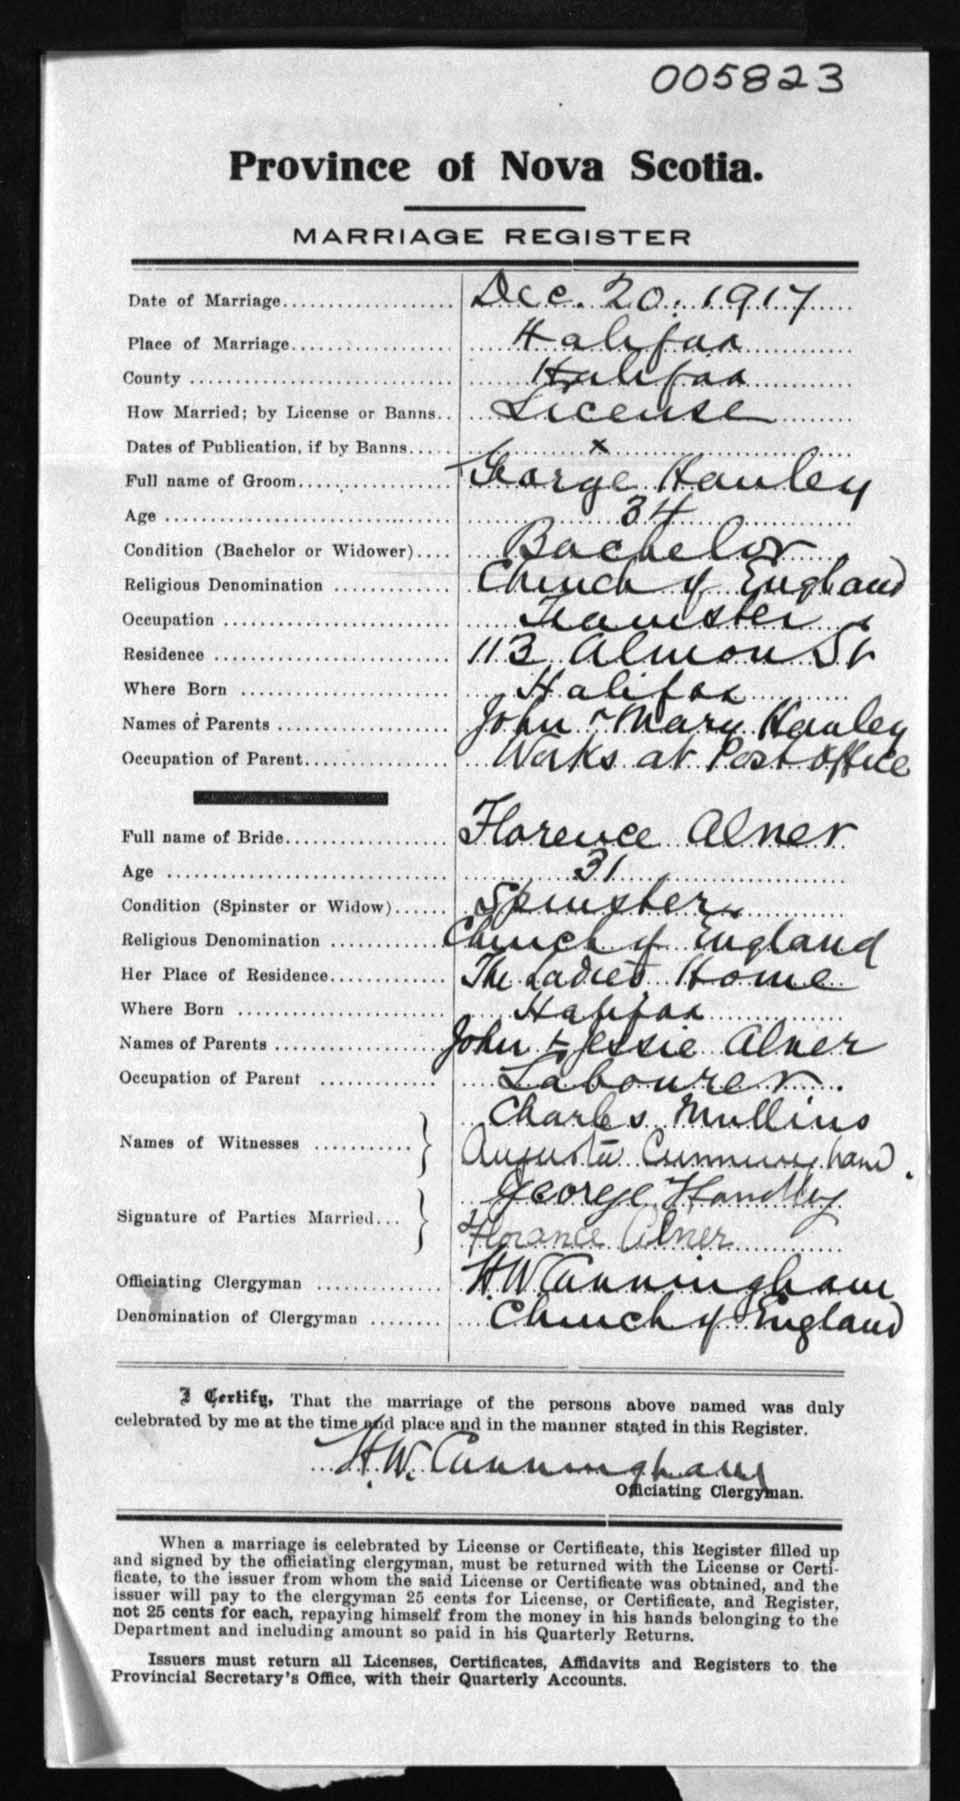 005823
Province of Nova Scotia.
MARRIAGE REGISTER
Date of Marriage.................... Dec. 20. 1917
Place of Marriage.................. Halifax
County ............................... Halifax
How Married; by License or Banns.. License
Dates of Publication, if by Banns..... x
Full name of Groom.................. George Hauley
Age .................................. 34
Condition (Bachelor or Widower).... Bachelor
Religious Denomination ............. Church of England
Occupation .......................... Teamster
Residence ........................... 113 Almon St
Where Born ........................ Halifax
Names of Parents ................... John + Mary Hauley
Occupation of Parent................. Works at Post Office
Full name of Bride................... Florence Alner
Age .................................. 31
Condition (Spinster or Widow)...... Spinster
Religious Denomination ............ Church of England
Her Place of Residence............. The Ladies Home
Where Born ........................ Halifax
Names of Parents ................... John + Jessie Alner
Occupation of Parent .............. Labourer.
Names of Witnesses ............ } Charles Mullins
Augusta Cunningham.
Signature of Parties Married... } George Handley
Florance Alner
Officiating Clergyman .............. H.W. Cunningham
Denomination of Clergyman ........ Church of England
I Certify, That the marriage of the persons above named was duly
celebrated by me at the time and place and in the manner stated in this Register.
H.W. Cunningham
Officiating Clergyman.
When a marriage is celebrated by License or Certificate, this Register filled up
and signed by the officiating clergyman, must be returned with the License or Certi-
ficate, to the issuer from whom the said License or Certificate was obtained, and the
issuer will pay to the clergyman 25 cents for License, or Certificate, and Register,
not 25 cents for each, repaying himself from the money in his hands belonging to the
Department and including amount so paid in his Quarterly Returns.
Issuers must return all Licenses, Certificates, Affidavits and Registers to the
Provincial Secretary's Office, with their Quarterly Accounts.